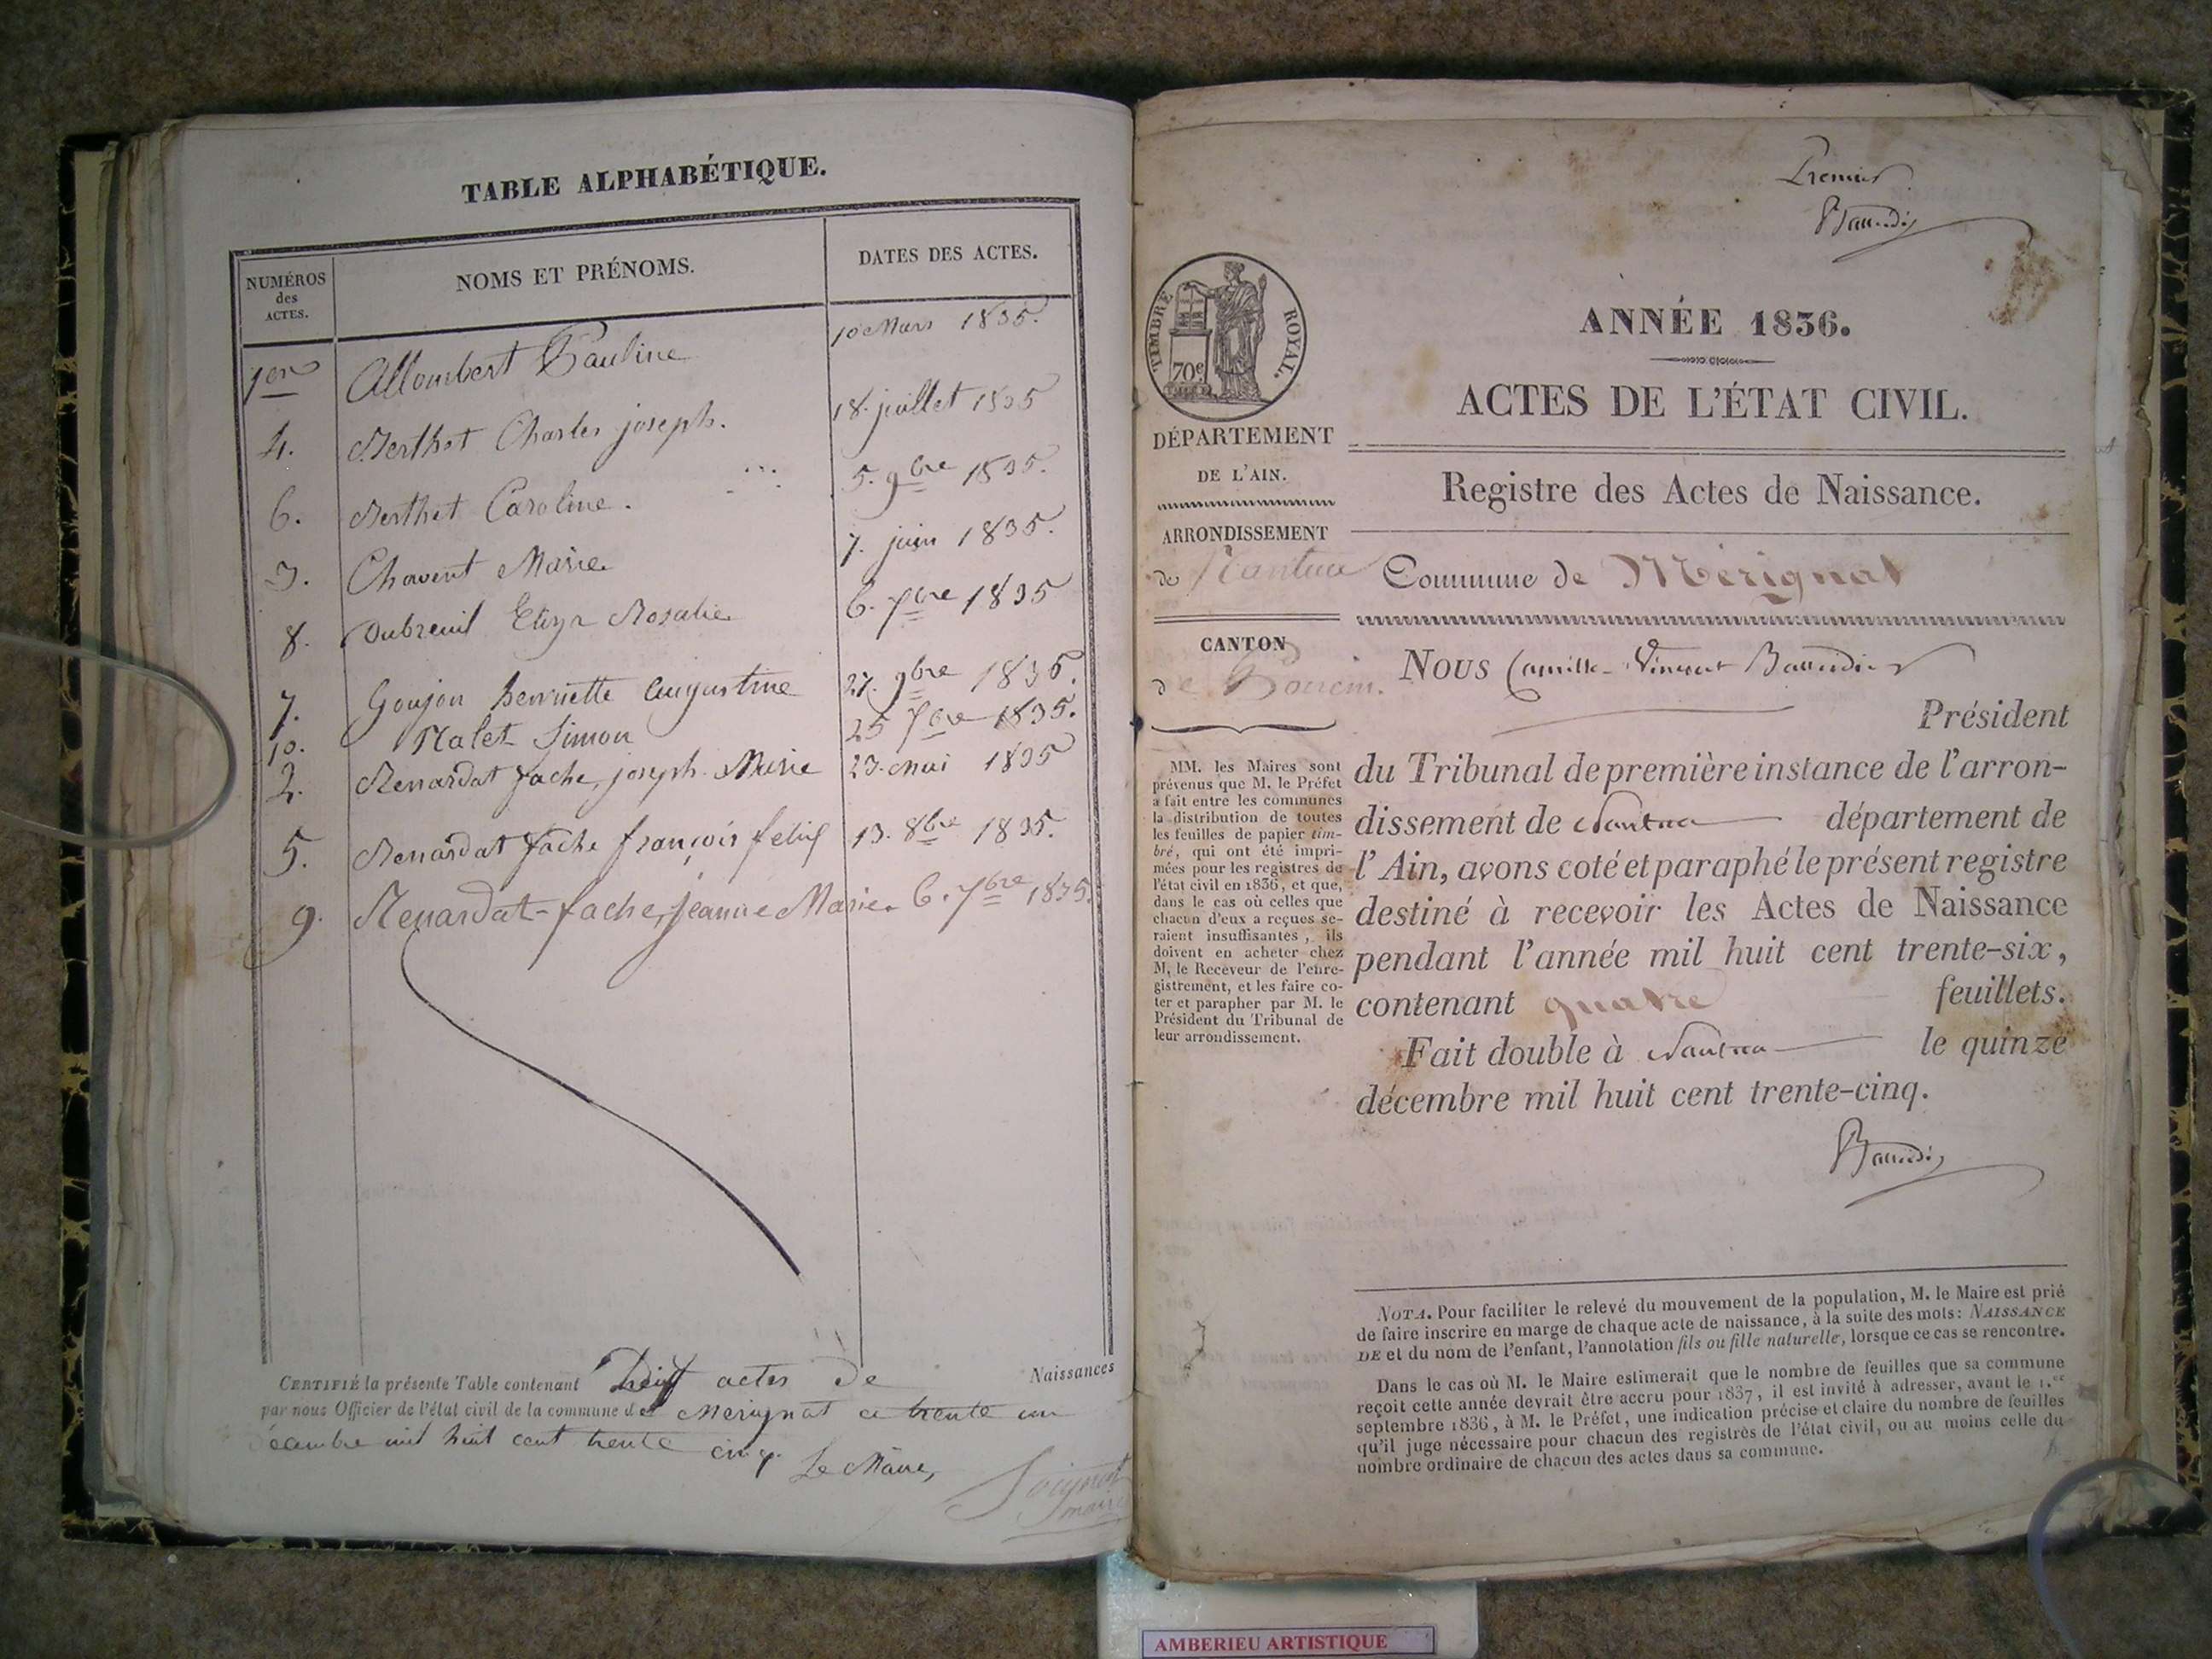 TABLE ALPHABÉTIQUE.
NUMÉROS
des
ACTES.
NOMS ET PRÉNOMS.
DATES DES ACTES.
1er Allombert Pauline 10 Mars 1835.
4. Berthet Charles joseph. 18. juillet 1835
6. Berthet Caroline. 5. 9bre 1835.
3. Chavent Marie 7. juin 1835.
8. Dubreuil Rosalie 6. 7bre 1835
7. Goujon henriette augustine 27. 9bre 1835.
10. Simon 25 1835.
2. Renardat fache, joseph Marie 23. mai 1835
5. Renardat fache françois felix 13. 8bre 1835.
9. Renardat-fache, jeanne Marie. 6. 7bre 1835.
CERTIFIÉ la présente Table contenant actes de Naissances
par nous Officier de l'état civil de la commune de Merignat ce trente un
décembre mil huit cent trente cinq.
Le Maire,
maire
Premier
ANNÉE 1836.
TIMBRE ROYAL.
70c
ACTES DE L'ÉTAT CIVIL.
DÉPARTEMENT
DE L'AIN.
Registre des Actes de Naissance.
ARRONDISSEMENT
de Nantua
Commune de Mérignat
CANTON
de Poncin.
NOUS Camille-Vincent
Président
du Tribunal de première instance de l'arron-
dissement de Nantua département de
l'Ain, avons coté et paraphé le présent registre
destiné à recevoir les Actes de Naissance
pendant l'année mil huit cent trente-six,
contenant quatre feuillets.
Fait double à Nantua le quinze
décembre mil huit cent trente-cinq.
MM. les Maires sont
prévenus que M. le Préfet
a fait entre les communes
la distribution de toutes
les feuilles de papier tim-
bré, qui ont été impri-
mées pour les registres de
l'état civil en 1836, et que,
dans le cas où celles que
chacun d'eux a reçues se-
raient insuffisantes, ils
doivent en acheter chez
M. le Receveur de l'enre-
gistrement, et les faire co-
ter et parapher par M. le
Président du Tribunal de
leur arrondissement.
NOTA. Pour faciliter le relevé du mouvement de la population, M. le Maire est prié
de faire inscrire en marge de chaque acte de naissance, à la suite des mots: NAISSANCE
DE et du nom de l'enfant, l'annotation fils ou fille naturelle, lorsque ce cas se rencontre.
Dans le cas où M. le Maire estimerait que le nombre de feuilles que sa commune
reçoit cette année devrait être accru pour 1837, il est invité à adresser, avant le 1.er
septembre 1836, à M. le Préfet, une indication précise et claire du nombre de feuilles
qu'il juge nécessaire pour chacun des registres de l'état civil, ou au moins celle du
nombre ordinaire de chacun des actes dans sa commune.
AMBERIEU ARTISTIQUE